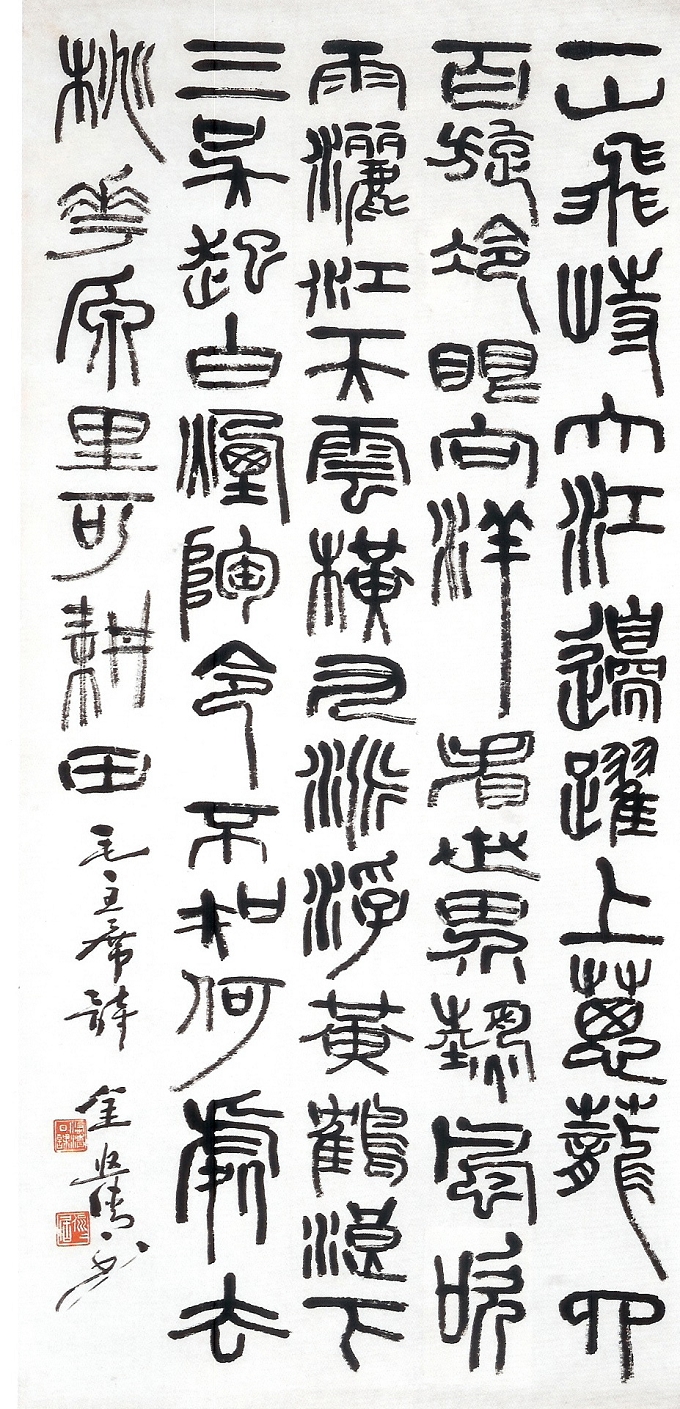 一山飛峙大江邊躍上蔥蘢四
百旋冷眼向洋看世界熱風吹
雨灑江天雲橫九派浮黃鶴浪下
三吳起白煙陶令不知何處去
桃華原里可耕田 毛主席詩